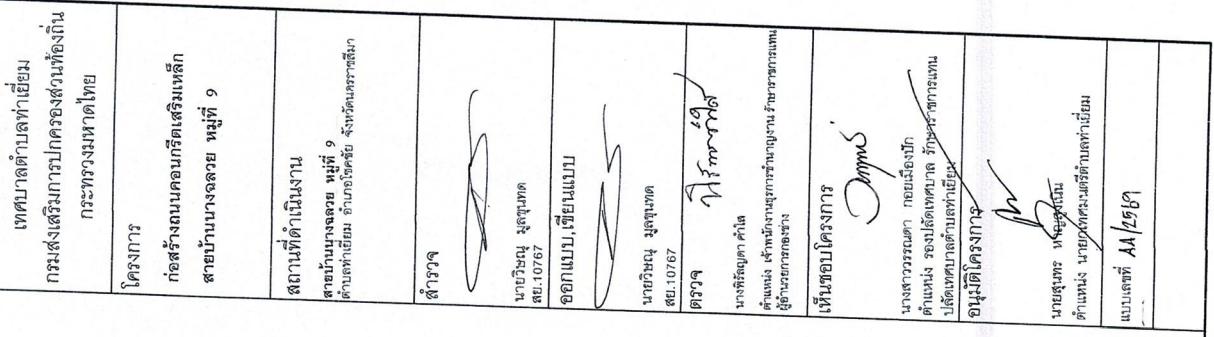 เทศบาลตำบลท่าเยี่ยม
กรมส่งเสริมการปกครองส่วนท้องถิ่น
กระทรวงมหาดไทย
โครงการ
ก่อสร้างถนนคอนกรีตเสริมเหล็ก
สายบ้านนางฉลวย หมู่ที่ 9
สถานที่ดำเนินงาน
สายบ้านนางฉลวย หมู่ที่ 9
ตำบลท่าเยี่ยม อำเภอโชคชัย จังหวัดนครราชสีมา
สำรวจ
นายวิษณุ มูลขุนทด
สย.10767
ออกแบบ,เขียนแบบ
นายวิษณุ มูลขุนทด
สย.10767
ตรวจ
นางพิรัญดา คำไล
ตำแหน่ง เจ้าพนักงานธุรการชำนาญงาน รักษาราชการแทน
ผู้อำนวยการกองช่าง
เห็นชอบโครงการ
นางสาววรรณดา กอยเมืองปัก
ตำแหน่ง รองปลัดเทศบาล รักษาราชการแทน
ปลัดเทศบาลตำบลท่าเยี่ยม
อนุมัติโครงการ
นายสุนทร
ตำแหน่ง นายกเทศมนตรีตำบลท่าเยี่ยม
แบบเลขที่ 11/2569